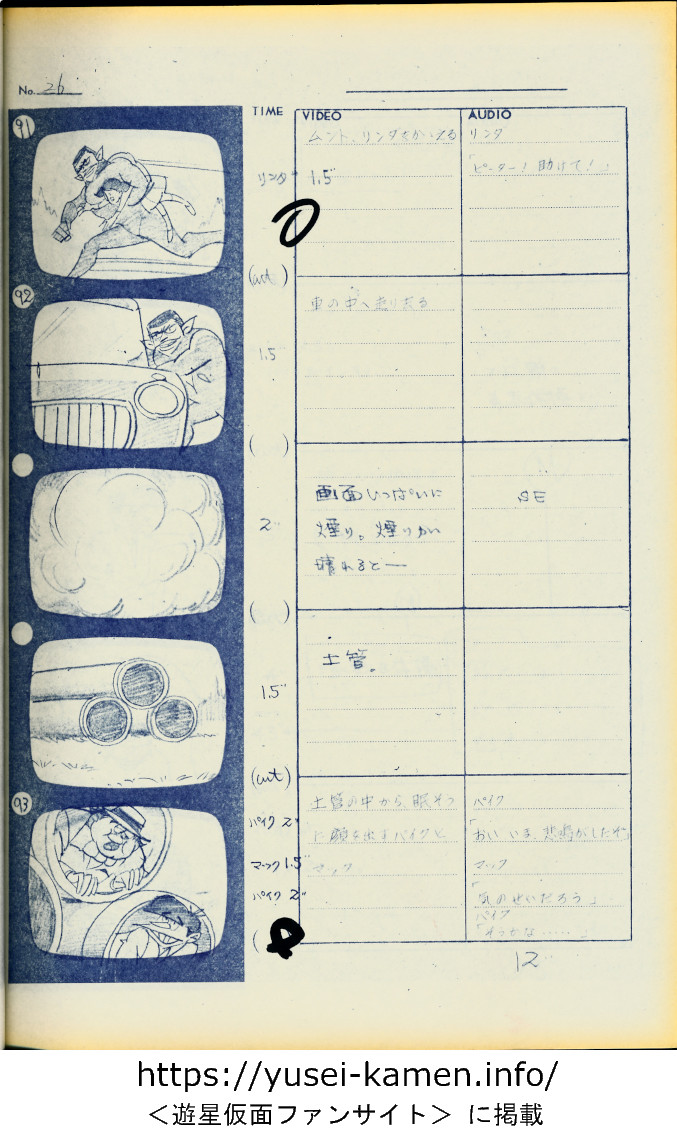 No. 26
TIME
VIDEO
AUDIO
91
ムント、リンダをかゝえる
リンダ
リンダ 1.5"
「ピーター！助けて！」
(cut )
92
車の中へ走り去る
1.5"
( )
画面いっぱいに
SE
2"
煙り。煙りが
壊れると—
( )
土管。
1.5"
(cut)
93
土管の中から、眠そう
パイク
パイク 2"
に顔を出すパイクと
「おい いま、悲鳴がしたぞ」
マック 1.5"
マック
マック
パイク 2"
「気のせいだろう」
パイク
「そうかな……」
(
12"
https://yusei-kamen.info/
＜遊星仮面ファンサイト＞ に掲載